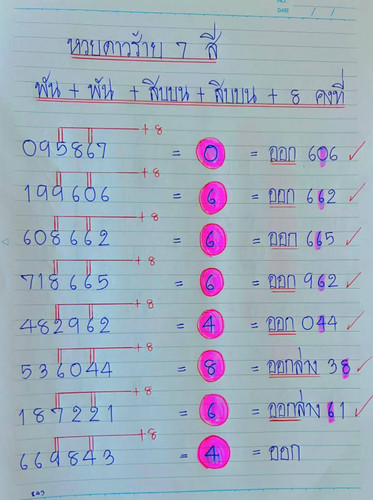 NO.
DATE / /
หวยดาวร้าย 7 สี
พัน + พัน + สิบบน + สิบบน + 8 คงที่
+8
095867 = 0 = ออก 606 ✓
+8
199606 = 6 = ออก 662 ✓
+8
608662 = 6 = ออก 665 ✓
+8
718665 = 6 = ออก 962 ✓
+8
482962 = 4 = ออก 044 ✓
+8
536044 = 8 = ออกล่าง 38 ✓
+8
187221 = 6 = ออกล่าง 61 ✓
+8
669843 = 4 = ออก